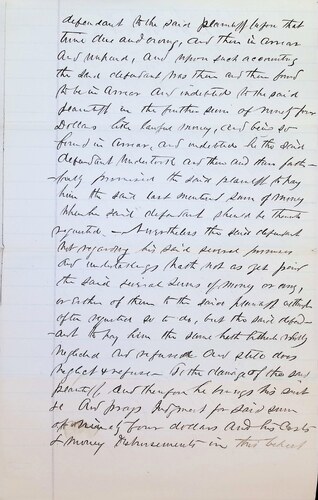 defendant to the said plaintiff upon that
time due and owing, and then in arrear
and unpaid, and upon such accounting
the said defendant was then and there found
to be in arrear and indebted to the said
plaintiff in the further sum of ninety four
Dollars like lawful money, and being so
found in arrear, and indebted he the said
defendant undertook and then and there faith-
-fully promised the said plaintiff to pay
him the said last mentioned sum of money
when he said defendant should be thereto
requested. — Nevertheless the said defendant
not regarding his said several promises
and undertakings hath not as yet paid
the said several sums of money or any,
or either of them to the said plaintiff although
often requested so to do, but the said defend-
-ant to pay him the same hath hitherto wholly
neglected and refused and still does
neglect & refuse — To the damage of the said
plaintiff, and therefore he brings his suit
&c And prays Judgment for said sum
of ninety four dollars and his Costs
& money disbursements in this behalf